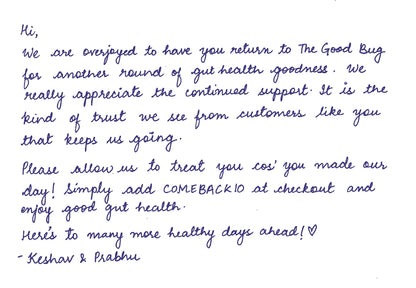 Hi,
We are overjoyed to have you return to The Good Bug
for another round of gut health goodness. We
really appreciate the continued support. It is the
kind of trust we see from customers like you
that keeps us going.
Please allow us to treat you cos' you made our
day! Simply add COMEBACK10 at checkout and
enjoy good gut health.
Here's to many more healthy days ahead! ♡
- Keshav & Prabhu